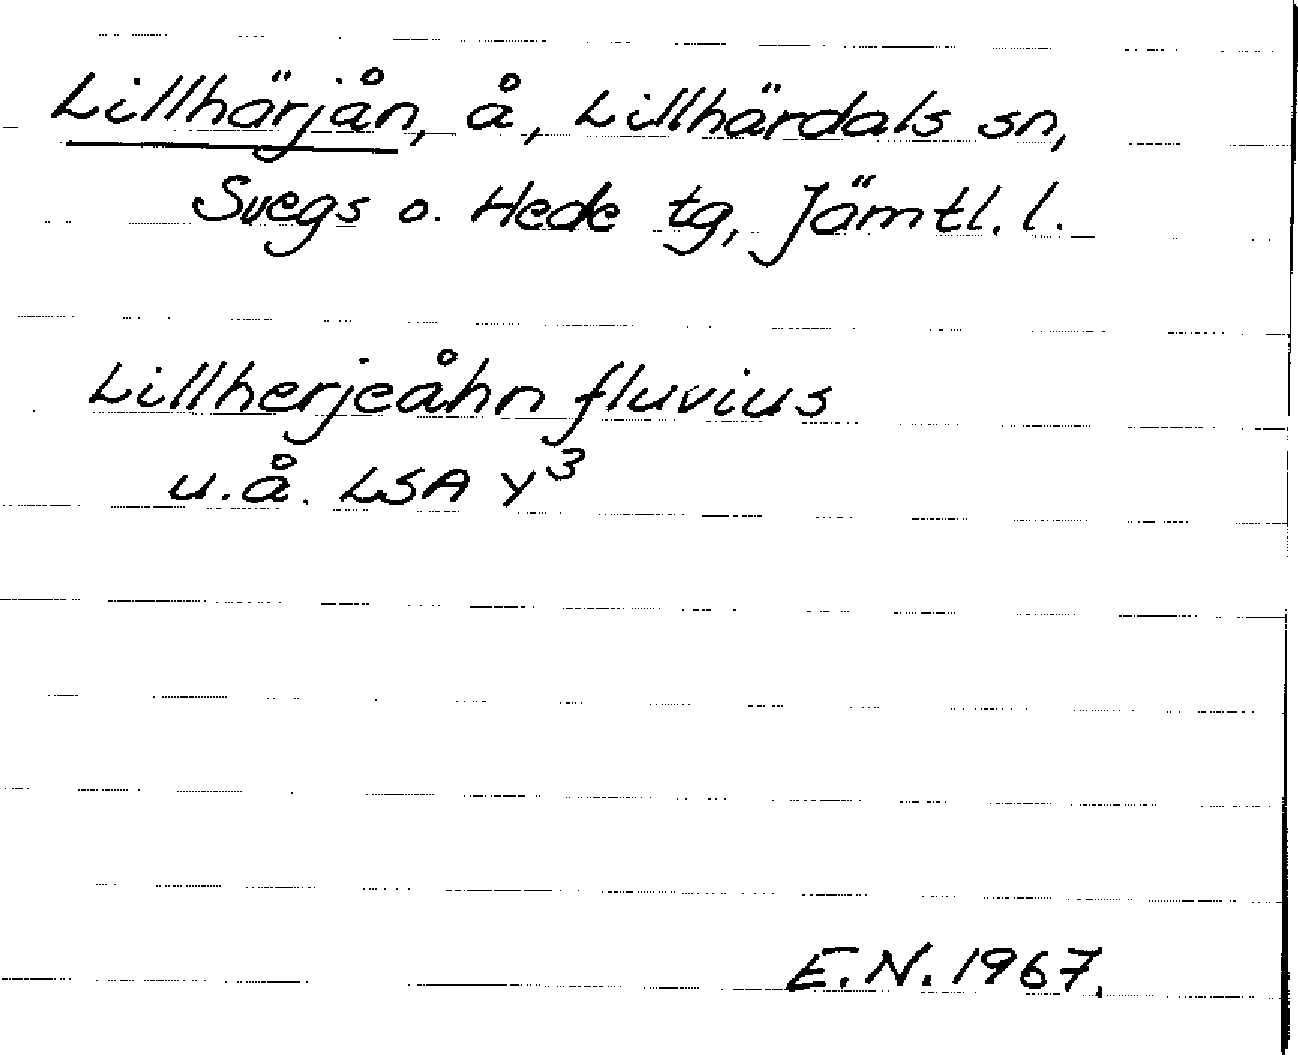 Lillhärjån, å, Lillhärdals sn,
Svegs o. Hede tg, Jämtl. l.
Lillherjeåhn fluvius
u.å. LSA Y³
E.N. 1967.